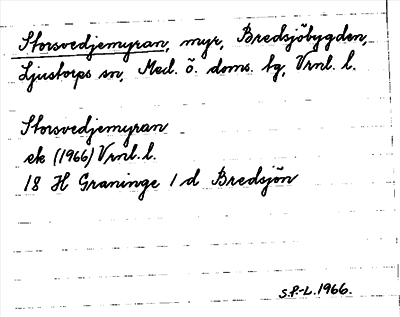 Storsvedjemyran, myr, Bredsjöbygden,
Ljustorps sn, Med. ö. doms. tg, Vrnl. l.
Storsvedjemyran
ek (1966) Vrnl. l.
18 H Graninge 1 d Bredsjön
S.P-L. 1966.